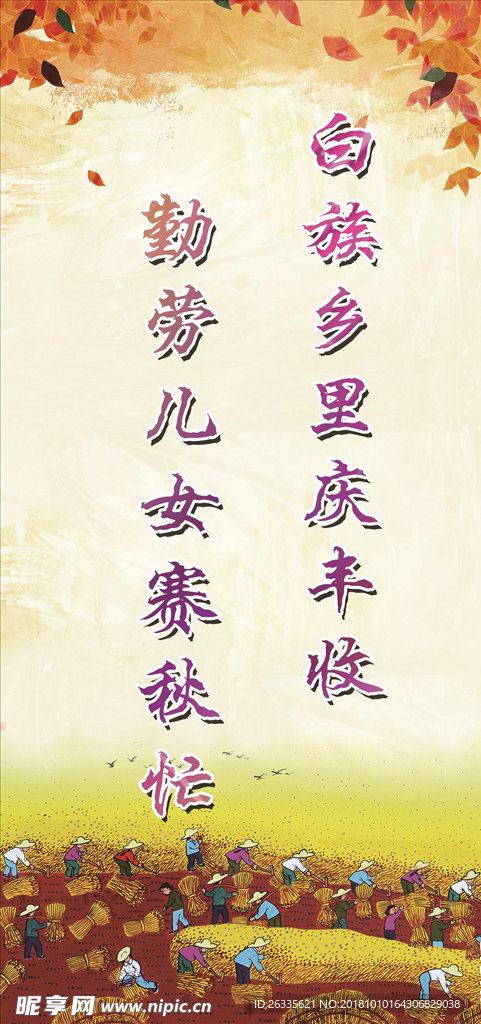 白族乡里庆丰收
勤劳儿女赛秋忙
昵享网 www.nipic.cn
ID:26335621 NO:20181010164306829038